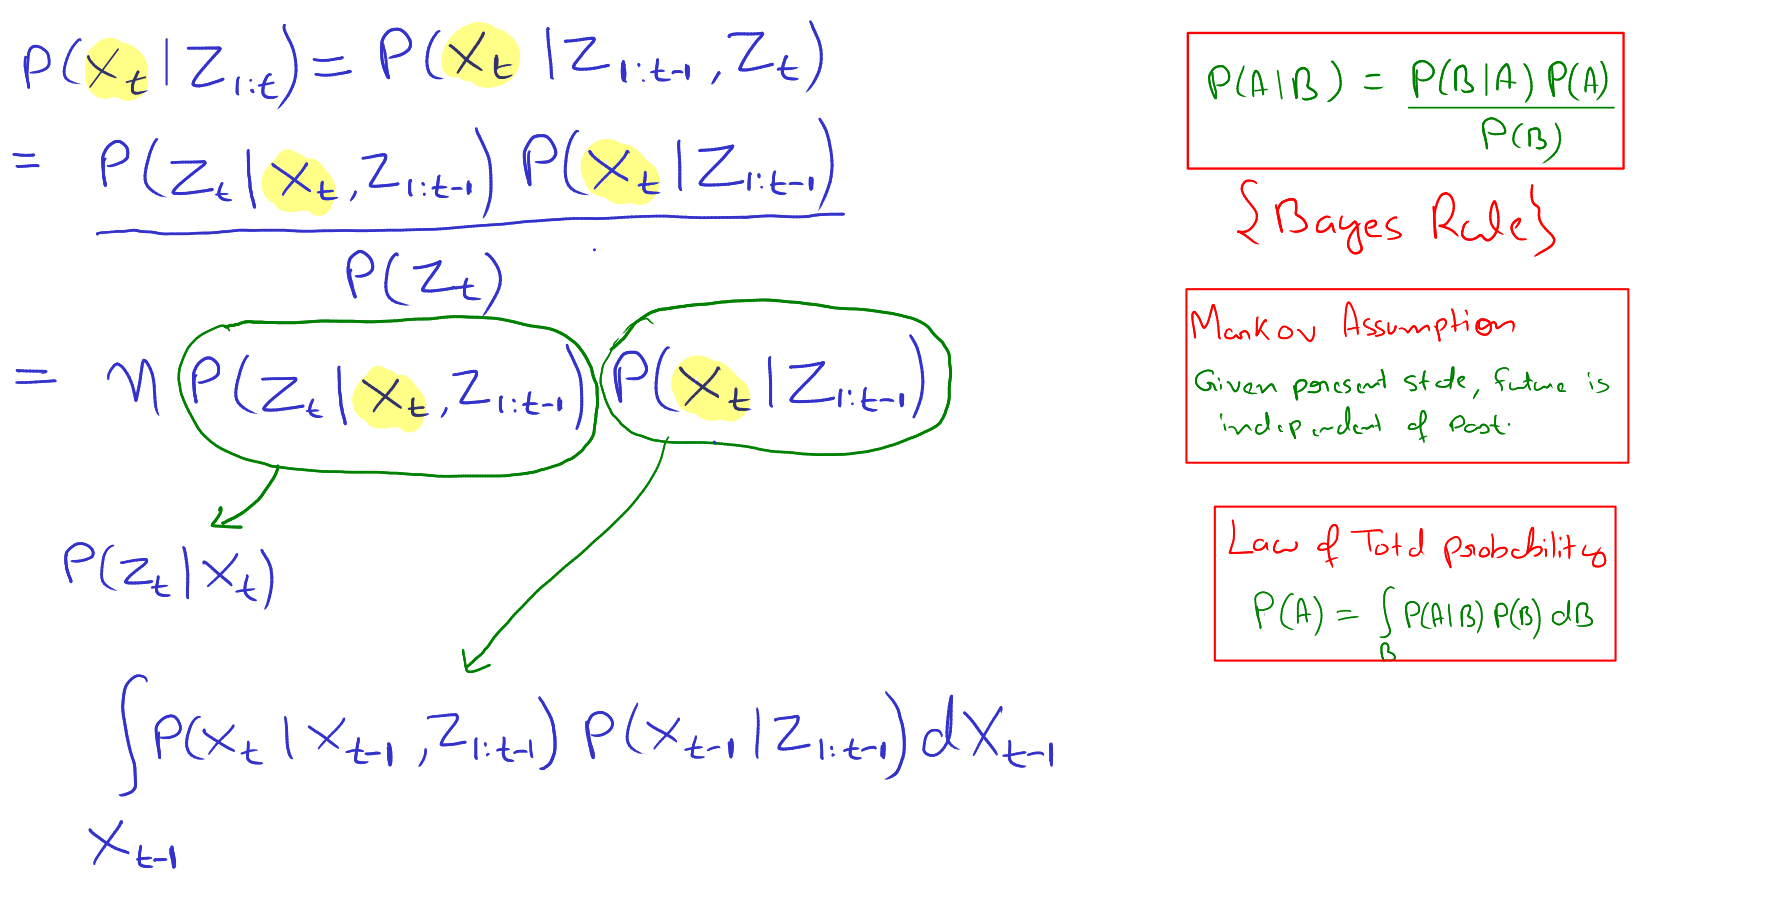 P(x_t | Z_{1:t}) = P(x_t | Z_{1:t-1}, Z_t)
= P(Z_t | x_t, Z_{1:t-1}) P(x_t | Z_{1:t-1})
P(Z_t)
= η P(Z_t | x_t, Z_{1:t-1}) P(x_t | Z_{1:t-1})
P(Z_t | x_t)
∫ P(x_t | x_{t-1}, Z_{1:t-1}) P(x_{t-1} | Z_{1:t-1}) dx_{t-1}
x_{t-1}
P(A|B) = P(B|A) P(A)
P(B)
{Bayes Rule}
Markov Assumption
Given present state, future is
independent of Past.
Law of Total probability
P(A) = ∫ P(A|B) P(B) dB
B